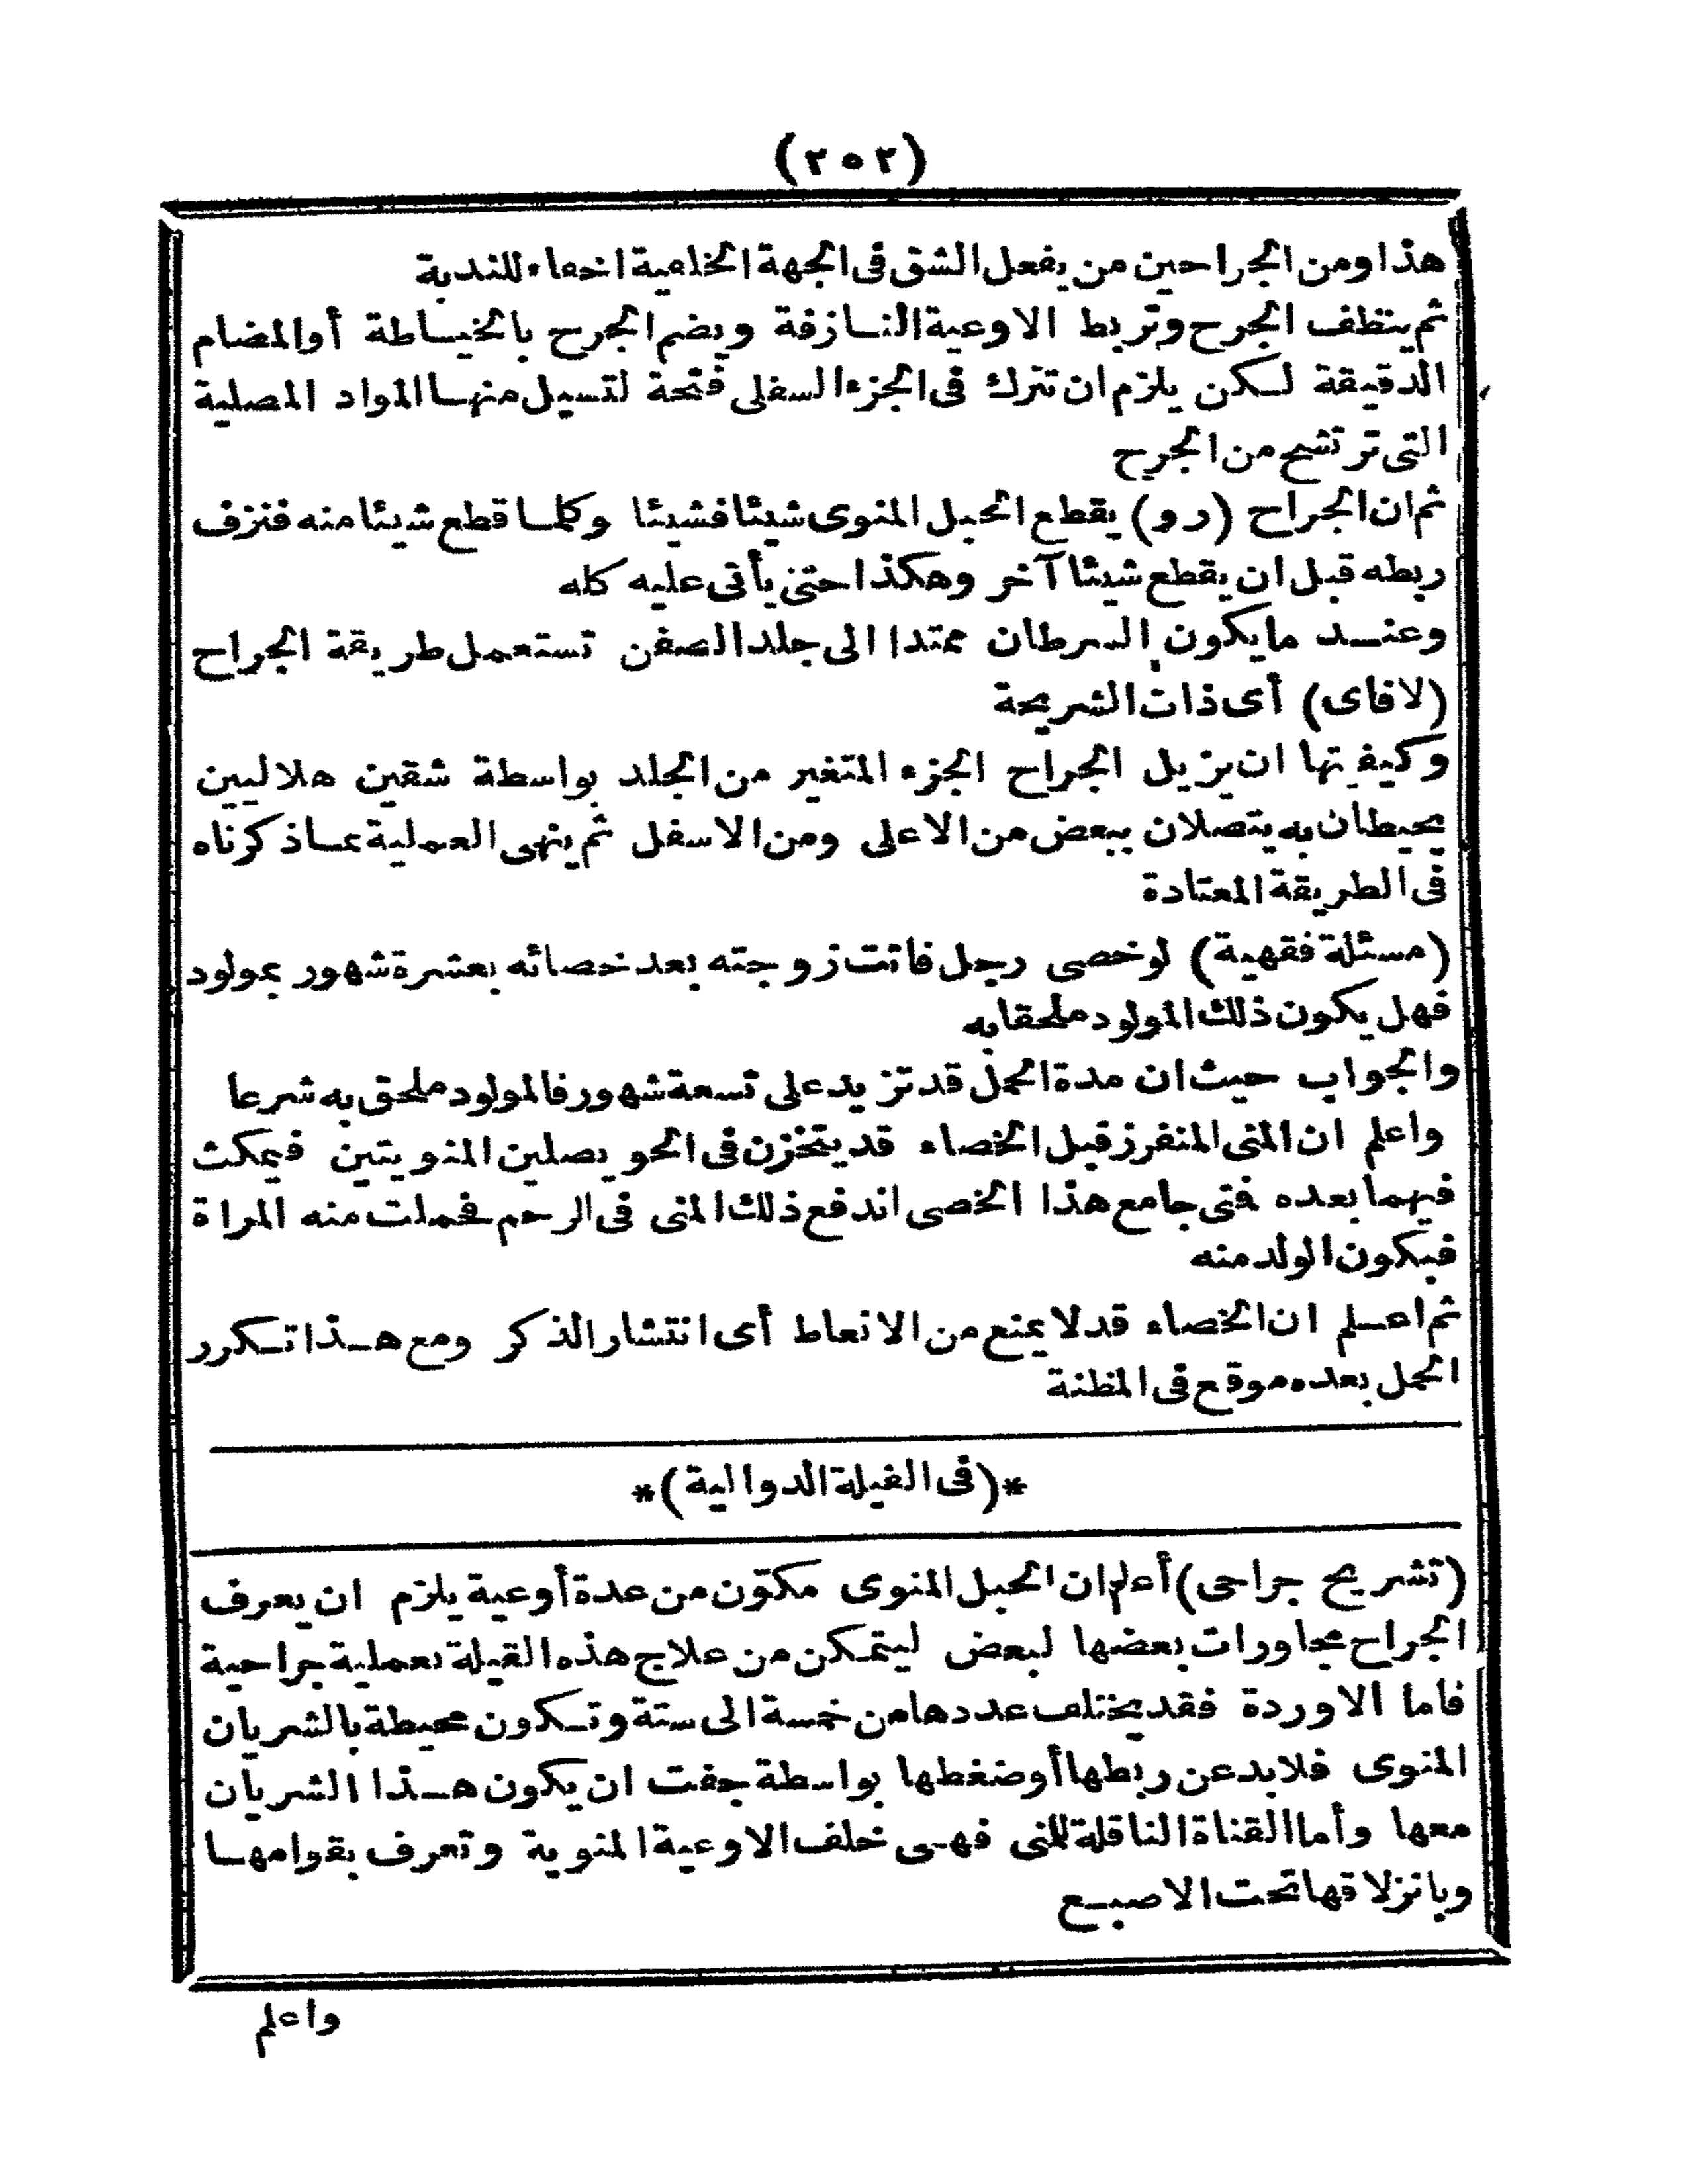 (٢٥٢)
هذا ومن الجراحين من يفعل الشق فى الجهة الخلفية اخفاء للندبة
ثم ينظف الجرح وتربط الاوعية النازفة ويضم الجرح بالخياطة أوالمضام
الدقيقة لكن يلزم ان تترك فى الجزء السفلى فتحة لتسيل منها المواد المصلية
التى ترتشح من الجرح
ثم ان الجراح (رو) يقطع الحبل المنوى شيئا فشيئا وكلما قطع شيئا منه فنزف
ربطه قبل ان يقطع شيئا آخر وهكذا حتى يأتى عليه كله
وعند ما يكون السرطان ممتدا الى جلد الصفن تستعمل طريقة الجراح
(لافاى) أى ذات الشريحة
وكيفيتها ان يزيل الجراح الجزء المتغير من الجلد بواسطة شقين هلاليين
يحيطان به يتصلان ببعض من الاعلى ومن الاسفل ثم ينهى العملية بما ذكرناه
فى الطريقة المعتادة
(مسئلة فقهية) لو خصى رجل فاتت زوجته بعد خصائه بعشرة شهور بمولود
فهل يكون ذلك المولود ملحقا به
والجواب حيث ان مدة الحمل قد تزيد على تسعة شهور فالمولود ملحق به شرعا
واعلم ان المنى المنفرز قبل الخصاء قد يتخزن فى الحويصلين المنويتين فيمكث
فيهما بعده فمتى جامع هذا الخصى اندفع ذلك المنى فى الرحم فحملت منه المراة
فيكون الولد منه
ثم اعلم ان الخصاء قد لا يمنع من الانعاط أى انتشار الذكر ومع هذا تكرر
الحمل بعده موقع فى المظنة
*(فى الغيلة الدوالية)*
(تشريح جراحى) أعلم ان الحبل المنوى مكوّن من عدة أوعية يلزم ان يعرف
الجراح مجاورات بعضها لبعض ليتمكن من علاج هذه القيلة بعملية جراحية
فاما الاوردة فقد يختلف عددها من خمسة الى ستة وتكون محيطة بالشريان
المنوى فلابد عن ربطها أو ضغطها بواسطة جفت ان يكون هذا الشريان
معها وأما القناة الناقلة للمنى فهى خلف الاوعية المنوية وتعرف بقوامها
وبانزلاقها تحت الاصبع
واعلم